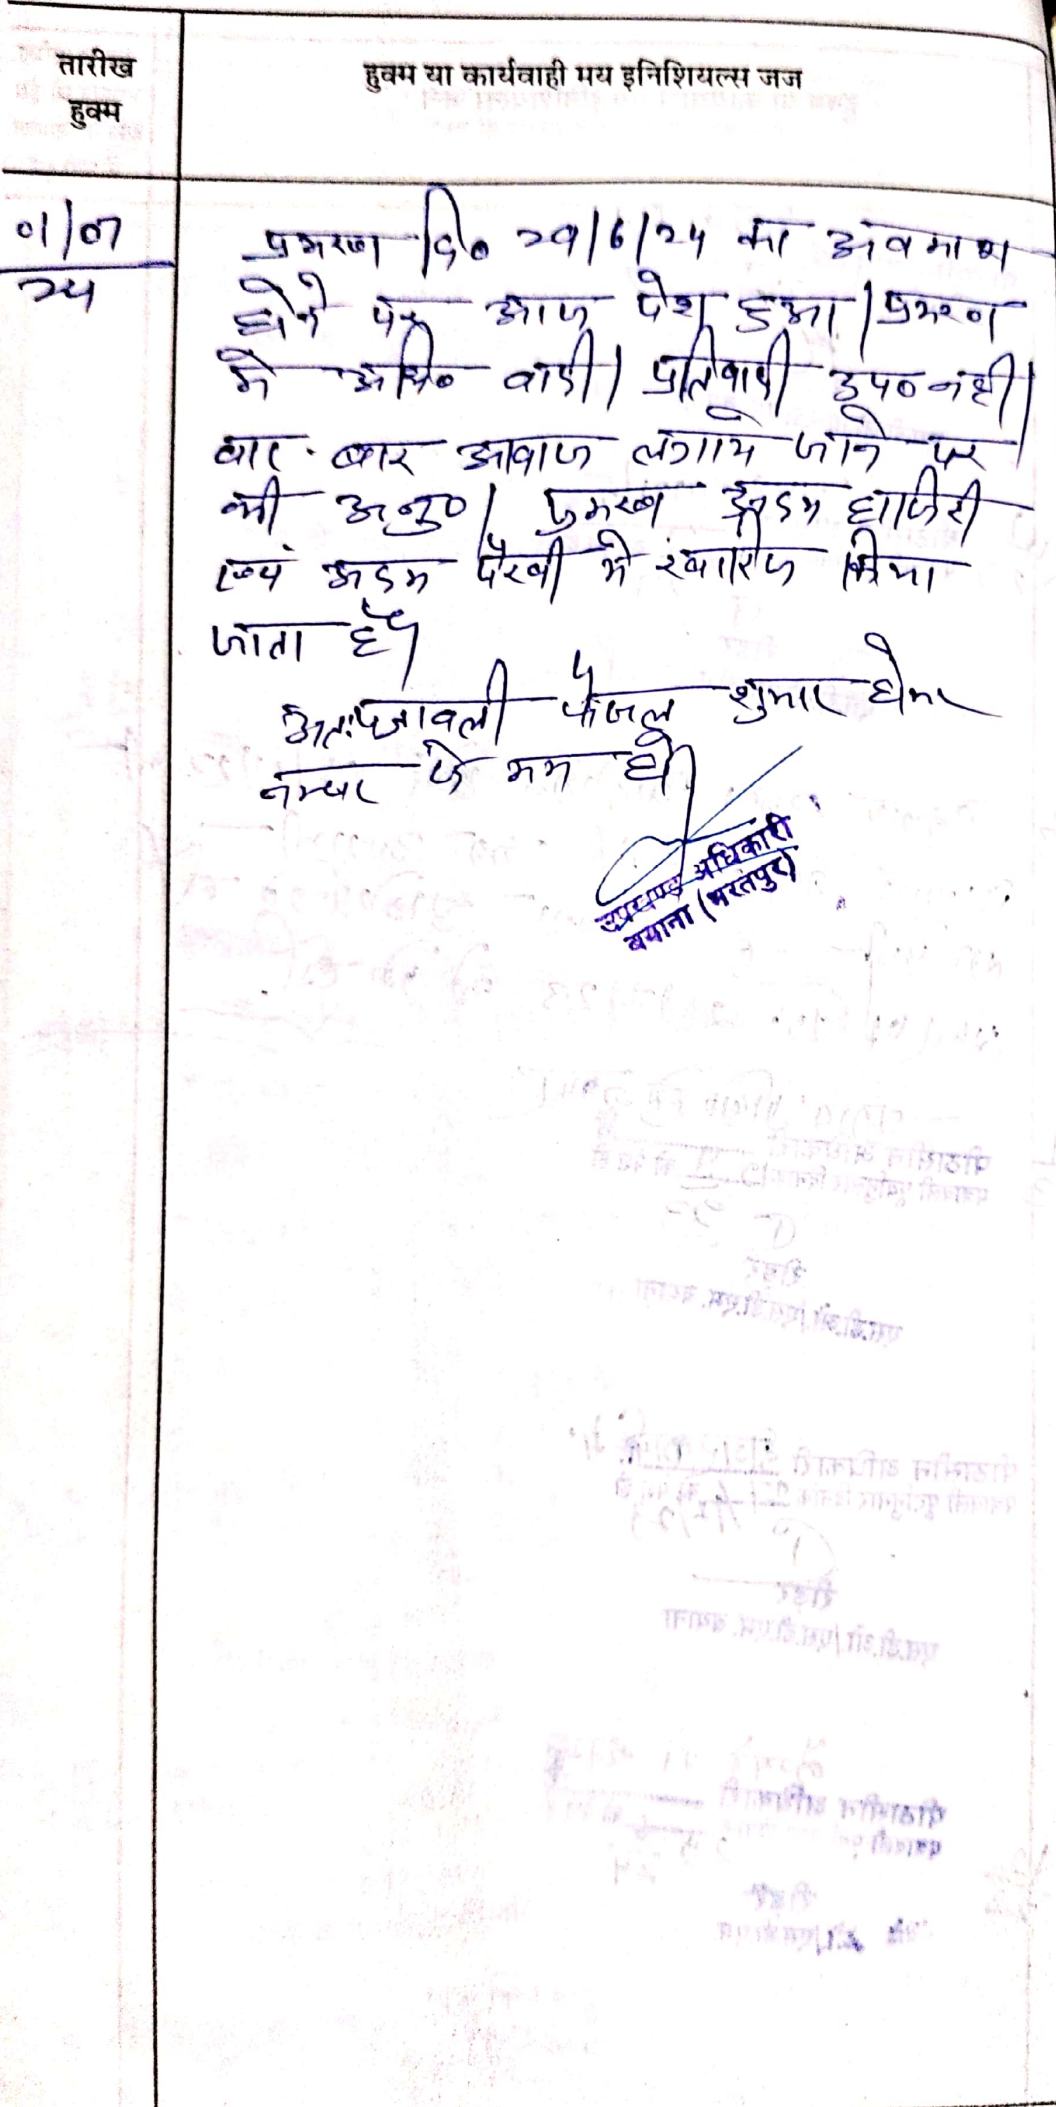 तारीख
हुक्म
हुक्म या कार्यवाही मय इनिशियल्स जज
01/07
24
प्रकरण दि० 29/6/24 का अवकाश
होने पर आज पेश हुआ। प्रकरण
मे अभि० वादी। प्रतिवादी उप० नही।
बार-बार आवाज लगाये जाने पर
भी अनु०। प्रकरण अदम हाजिरी
एवं अदम पैरवी मे खारिज किया
जाता है।
अतः पत्रावली फैसल शुमार होकर
नम्बर से कम हो।
उपखण्ड अधिकारी
बयाना (भरतपुर)